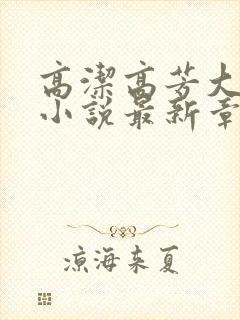 高潔高芳大
小說最新章
涼海来夏